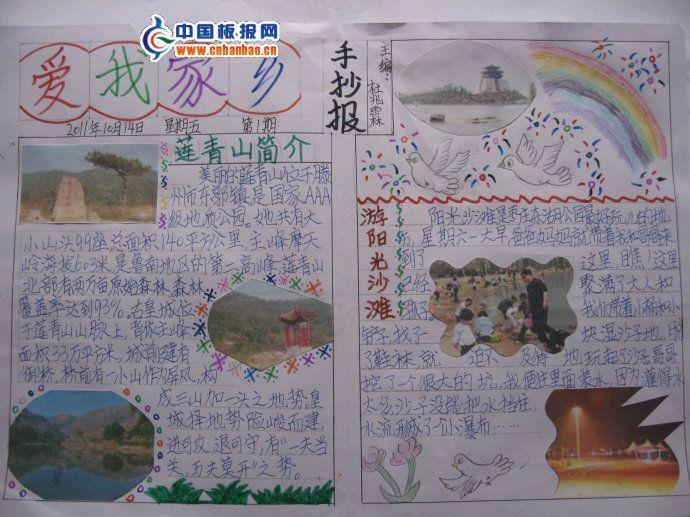 中国板报网
www.cnbanbao.cn
爱我家乡
手抄报
主编：
杜兆霖
2011年10月14日 星期五 第1期
莲青山简介
美丽的莲青山位于滕
州市东郭镇,是国家AAA
级地质公园。她共有大
小山头99座总面积140平方公里,主峰摩天
岭海拔603米是鲁南地区的第一高峰,莲青山
北部有两万亩原始森林,森林
覆盖率达到93%。右皇城位
于莲青山山脉上,背依主峰,
面积33万平方米,城前建有
御桥,桥前有一小山作为屏风,构
成三山加一头之地势,皇
城择地势险峻而建,
进可攻,退可守,有“一夫当
关,万夫莫开”之势。
游阳光沙滩
阳光沙滩是枣庄东湖公园最好玩儿的地
方,星期六一大早,爸爸妈妈就带着我和哥哥来
到了 这里,瞧!这里
已经 聚满了大人和
孩子 我们带着小桶和小
铲子,找了 块湿沙子地,脱
了鞋袜,就 迫不 及待 地 玩起了沙子哥哥
挖了一个很大的坑,我便往里面装水,因为灌得水
太多,沙子没能把水挡住,
水流形成了个小瀑布……